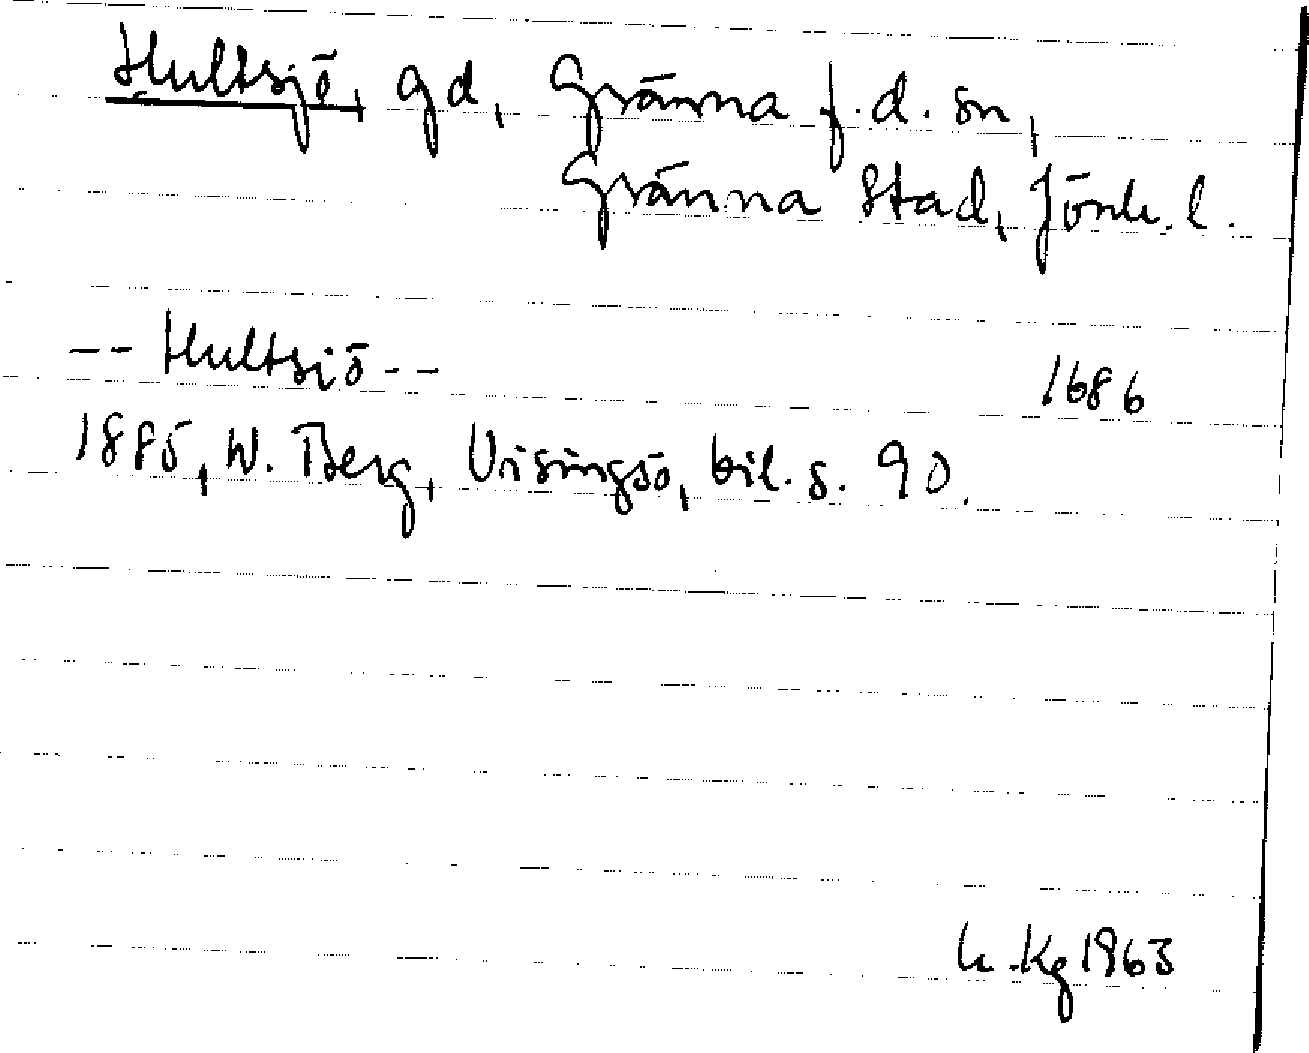 Hultsjö, gd, Gränna f.d. sn,
Gränna Stad, Jönk. l.
-- Hultsiö -- 1686
1885, W. Berg, Visingsö, bil. s. 90.
Kg 1963